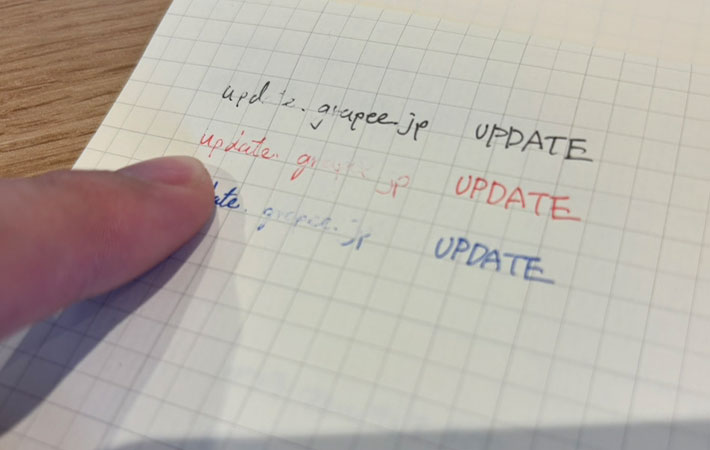 update.grapee.jp UPDATE
update.grapee.jp UPDATE
ate.grapee.jp UPDATE